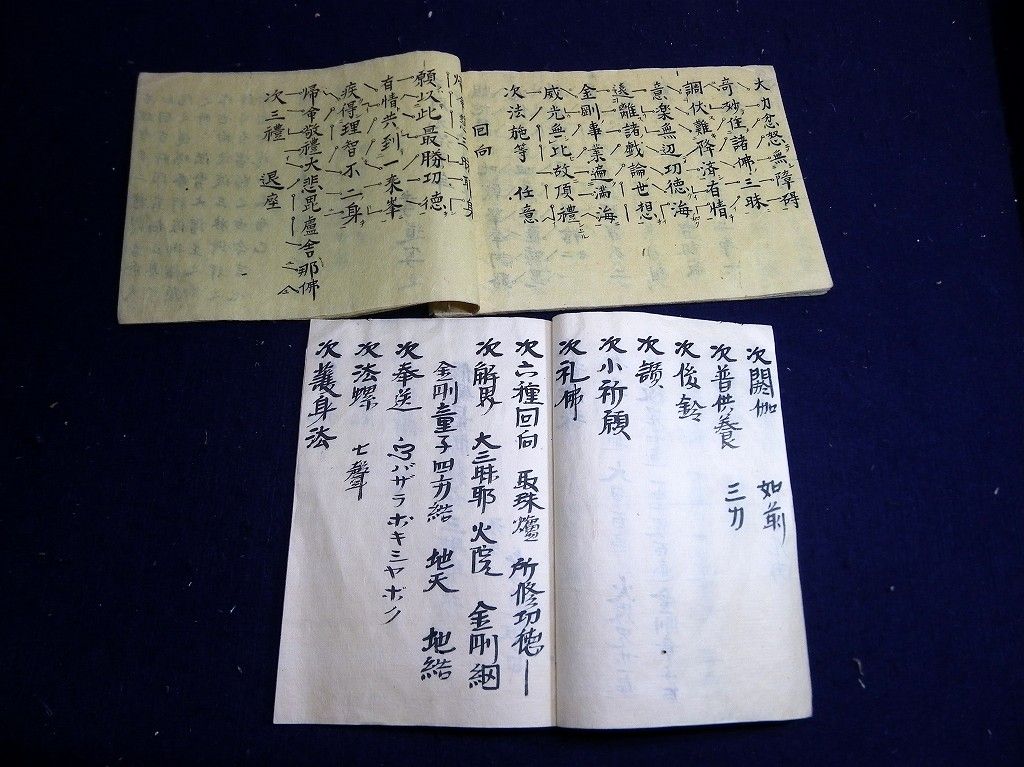 大力忿怒無障碍
奇妙住諸佛三昧
調伏難降済有情
意楽無辺功徳海
遠離諸戯論世想
金剛事業遍満海
威光無比故頂禮
次法施等 任意
回向
願以此最勝功徳
有情共到一来峯
疾得理智不二身
帰命敬禮大悲毘盧舎那佛
次三禮 退座
次閼伽 如前
次普供養 三力
次後鈴
次讃
次小祈願
次礼佛
次六種回向 取珠爐 所修功徳ー
次解界 大三昧耶 火院 金剛網
金剛童子四方結 地天 地結
次奉送 バザラボキシヤボク
次法螺 七聲
次護身法